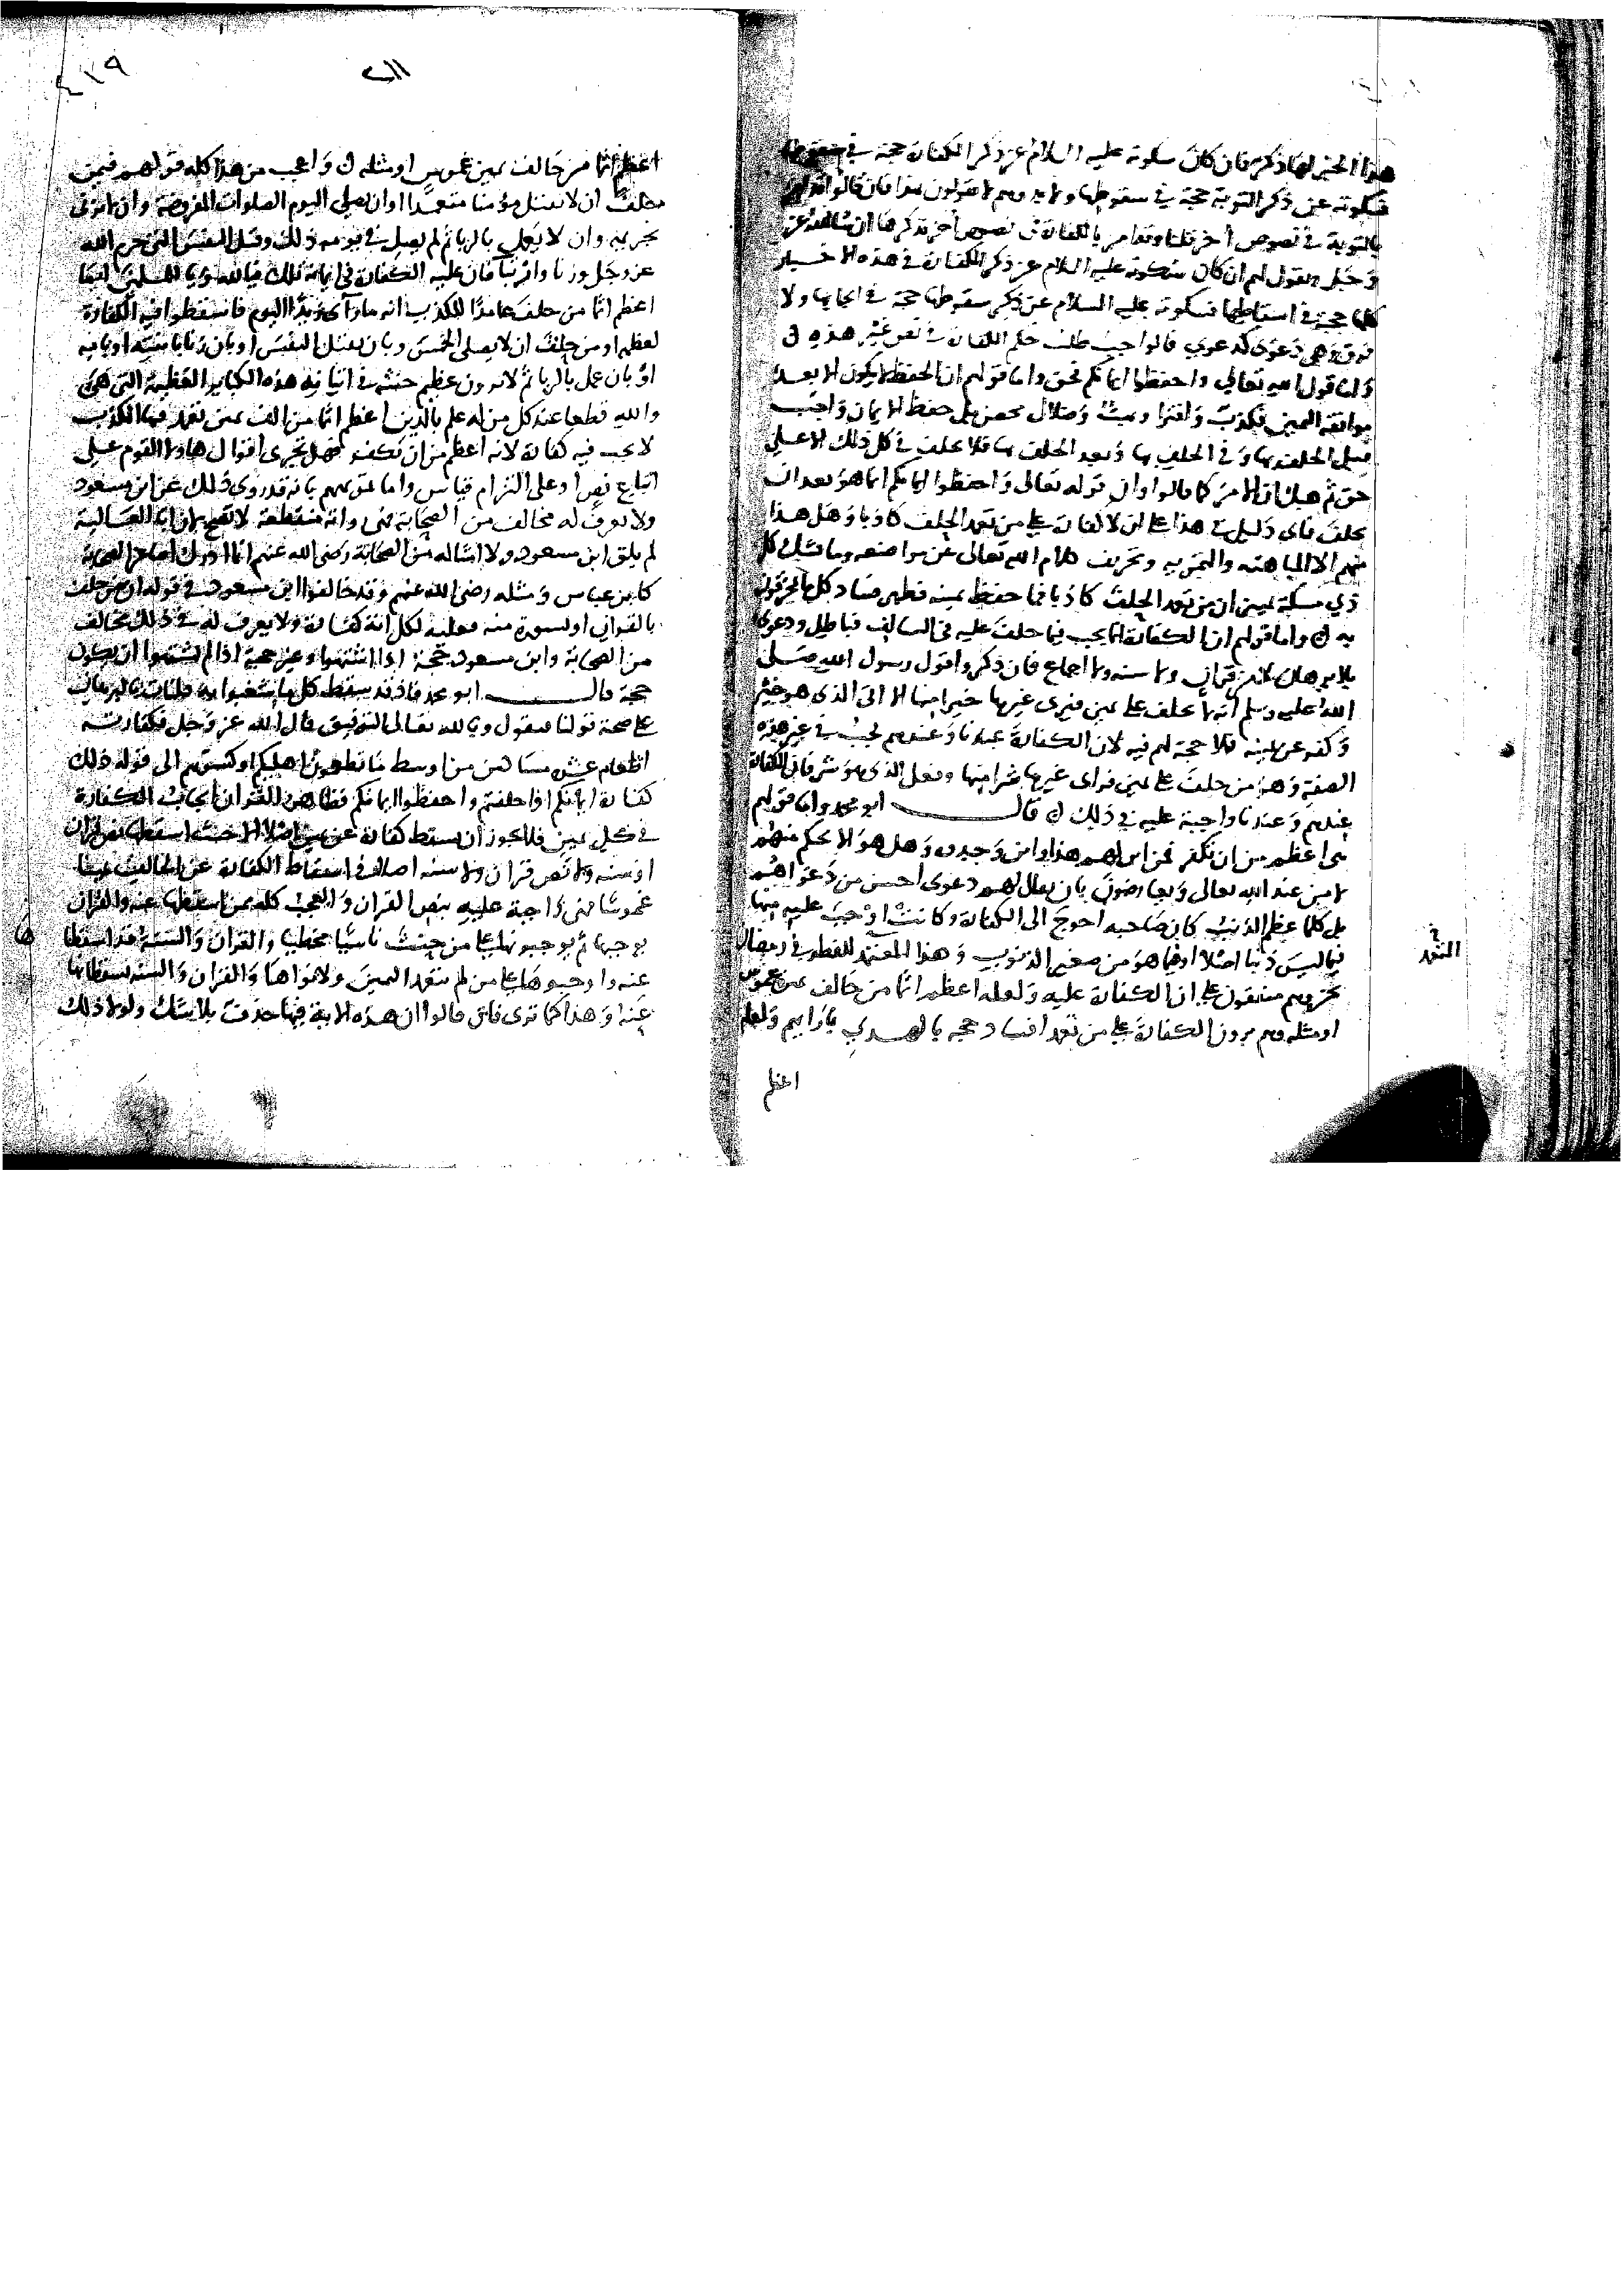 هذا الخبر لها ذكر فان كان سكوته عليه السلام عن ذكر الكفارة حجة في سقوطها
فسكوته عن ذكر التوبة حجة في سقوطها ولا بد وهم لا يقولون بهذا فان قالوا قد امر
بالتوبة في نصوص أخر قلنا وقد امر بالكفارة في نصوص أخر نذكرها ان شا الله عز
وجل ونقول لهم ان كان سكوته عليه السلام عن ذكر الكفارة في هذه الاخبار
كلها حجة في اسقاطها فسكوته عليه السلام عن ذكر سقوطها حجة في ايجابها ولا
فرق وهي دعوى كدعوى فالواجب طلب حكم الكفارة في نص غير هذه
واما قول الله تعالى واحفظوا ايمانكم فحق واما قولهم ان الحفظ لا يكون الا بعد
مواقعة اليمين فكذب وافترا وضلال محض بل حفظ الايمان واجب
قبل الحلف بها وفي الحلف بها وبعد الحلف بها فلا يحلف في كل ذلك الا على
حق ثم هبك ان الامر كما قالوا وان قوله تعالى واحفظوا ايمانكم انما هو بعد ان
يحلف فاى دليل في هذا على ان لا كفارة على من تعمد الحلف كاذبا وهل هذا
منهم الا المباهتة والتمويه وتحريف كلام الله تعالى عن مواضعه وما يشك كل
ذي مسكة تمييز ان من تعمد الحلف كاذبا فما حفظ يمينه فظهر فساد كل ما يمخرقون
به واما قولهم ان الكفارة انما يجب فيما حلف عليه في المستانف فباطل ودعوى
بلا برهان لا من قرآن ولا سنه ولا اجماع فان ذكروا قول رسول الله صلى
الله عليه وسلم انه لا يحلف على يمين فيرى غيرها خيرا منها الا اتى الذى هو خير
وكفر عن يمينه فلا حجة لهم فيه لان الكفارة عندنا وعندهم تجب في غير هذه
الصفة وهو من حلف على يمين فراى غيرها شرا منها وفعل الذى هو شر فان الكفارة
عندهم وعندنا واجبة عليه في ذلك قال ابو محمد واما قولهم
هي اعظم من ان تكفر فمن اين لهم هذا واين وجدوه وهل هو الا حكم منهم
لا من عند الله تعالى ويعارضون بان يقال لهم دعوى احسن من دعواهم
بل كلما عظم الذنب كان صاحبه احوج الى الكفارة وكانت اوجب عليه منها
فيما ليس ذنبا اصلا او فيما هو من صغير الذنوب وهذا المتعمد للفطر في رمضان
المتعمد
نحن وهم متفقون على ان الكفارة عليه ولعله اعظم اثما من حالف يمين غموس
او مثله وهم يرون الكفارة على من تعمد افساد حجه بالهدي بارايهم ولعله
اعظم
٤١٩
اعظم اثما من حالف يمين غموس او مثله واعجب من هذا كله قولهم فيمن
حلف ان لا يقتل مؤمنا متعمدا وان يصلي اليوم الصلوات المفروضة وان لا يزني
بحريمه وان لا يعمل بالربا ثم لم يصل في يومه ذلك وقتل النفس التي حرم الله
عز وجل وزنا واربا فان عليه الكفارة في ايمانه تلك فيا لله ويا للمسلمين ايما
اعظم اثما من حلف عامدا للكذب انه ما رآى زيدا اليوم فاسقطوا فيه الكفارة
لعظمه او من حلف ان لا يصلى الخمس وبان يقتل النفس وبان زنا بابنته او بامه
او بان عمل بالربا ثم لا يرون عظم حنثه في اتيانه هذه الكبائر العظيمة التي هي
والله قطعا عند كل من له علم بالدين اعظم اثما من الف يمين تعمد فيها الكذب
لا يجب فيه كفارة لانه اعظم من ان تكفر فهل تجرى اقوال هاولا القوم على
اتباع نص او على التزام قياس واما تمويههم بانه قد روى ذلك عن ابن مسعود
ولا يعرف له مخالف من الصحابة فهي رواية منقطعة لا تصح لان ابا العالية
لم يلق ابن مسعود ولا امثاله من الصحابة رضى الله عنهم انما ادرك اصاغر الصحابة
كابن عباس ومثله رضى الله عنهم وقد خالفوا ابن مسعود في قوله ان من حلف
بالقرآن او بسورة منه فعليه لكل اية كفارة ولا يعرف له في ذلك مخالف
من الصحابة وابن مسعود حجة اذا اشتهوا وغير حجة اذا لم يشتهوا ان يكون
حجة قال ابو محمد فاذ قد سقط كل ما شغبوا به فلنات بالبرهان
على صحة قولنا فنقول وبالله تعالى التوفيق قال الله عز وجل فكفارته
اطعام عشرة مساكين من اوسط ما تطعمون اهليكم او كسوتهم الى قوله ذلك
كفارة ايمانكم اذا حلفتم واحفظوا ايمانكم فظاهر القرآن ايجاب الكفارة
في كل يمين فلا يجوز ان يسقط كفارة عن يمين اصلا الا حيث اسقطها نص قرآن
او سنه ولا نص قرآن ولا سنه اصلا في اسقاط الكفارة عن الحالف يمينا
غموسا فهي واجبة عليه بنص القرآن والعجب كله ممن اسقطها عنه والقرآن
يوجبها ثم يوجبونها على من حنث ناسيا مخطيا والقرآن والسنة قد اسقطا
عنه واوجبوها على من لم يتعمد اليمين ولا نواها والقران والسنه يسقطانها
عنه وهذا كما ترى فان قالوا ان هذه الاية فيها حذف بلا شك ولولا ذلك